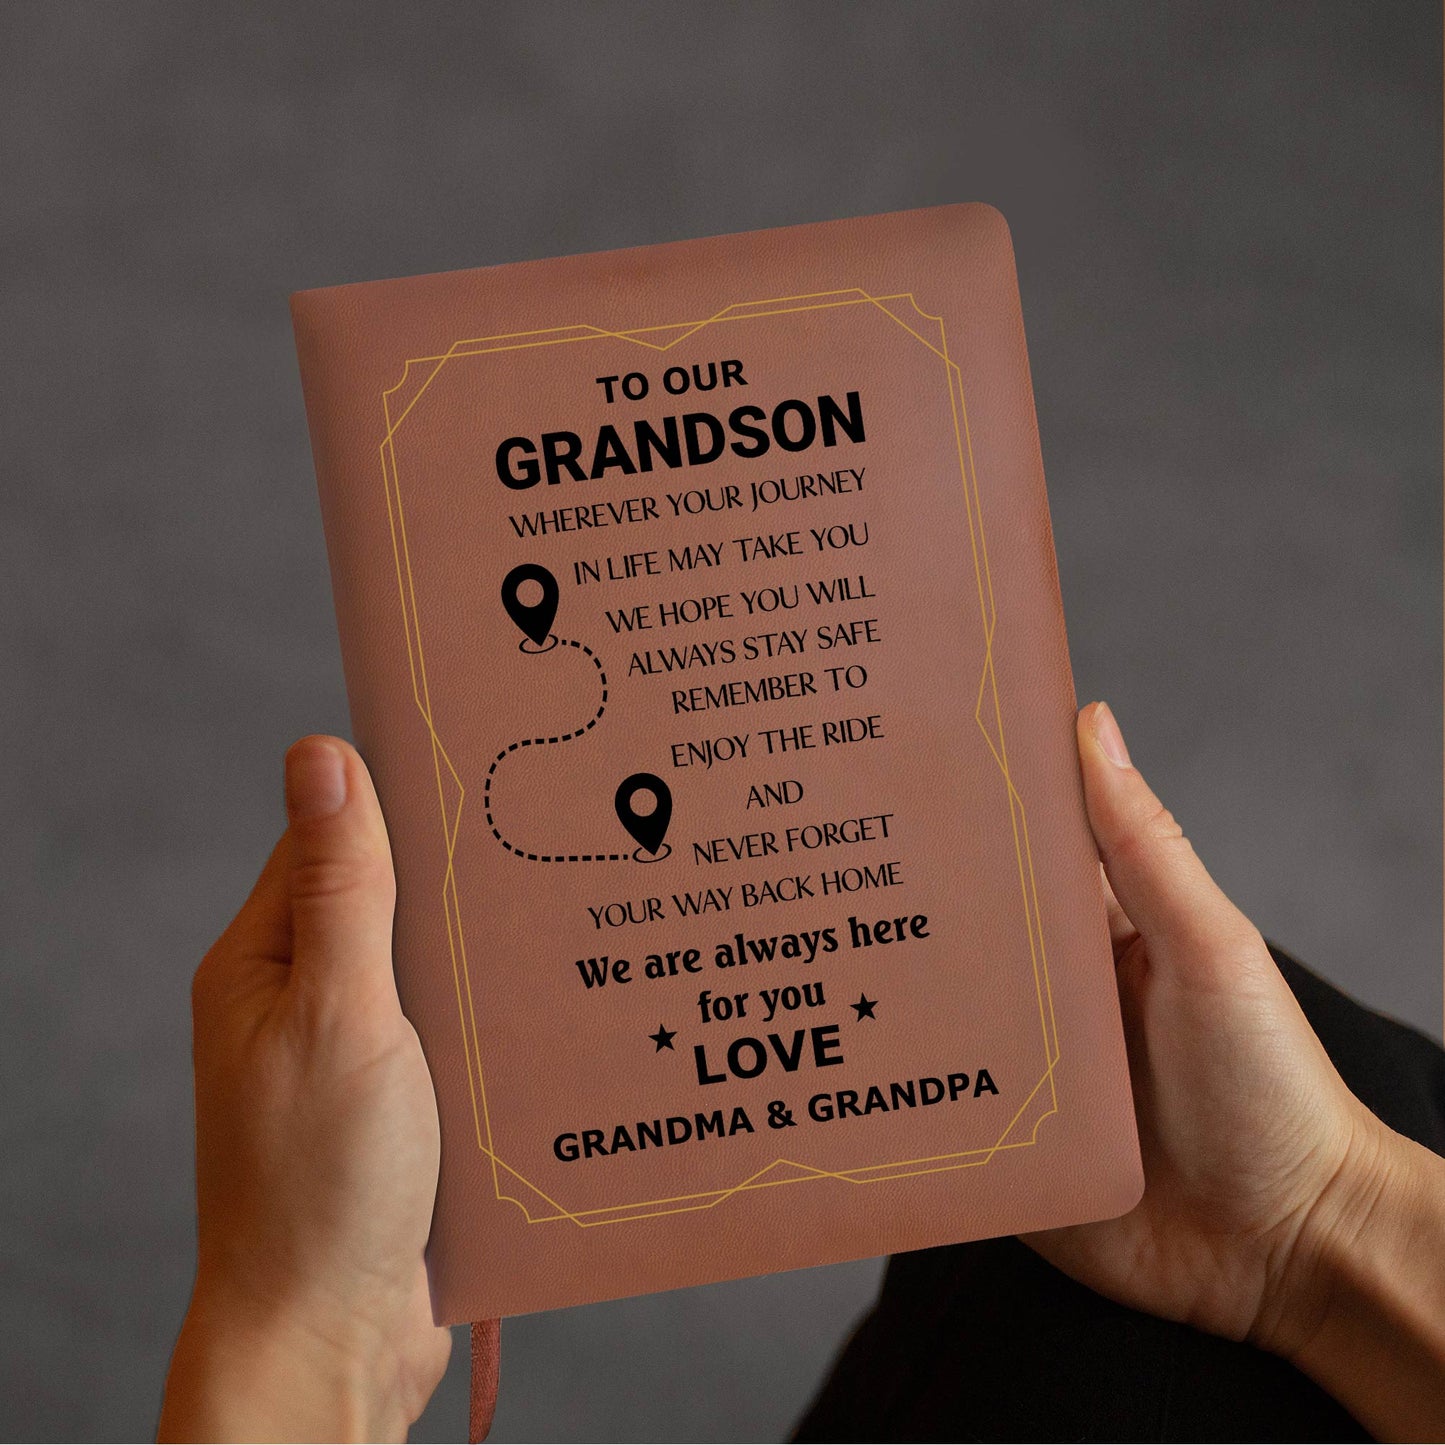 TO OUR
GRANDSON
WHEREVER YOUR JOURNEY
IN LIFE MAY TAKE YOU
WE HOPE YOU WILL
ALWAYS STAY SAFE
REMEMBER TO
ENJOY THE RIDE
AND
NEVER FORGET
YOUR WAY BACK HOME
We are always here
for you
LOVE
GRANDMA & GRANDPA